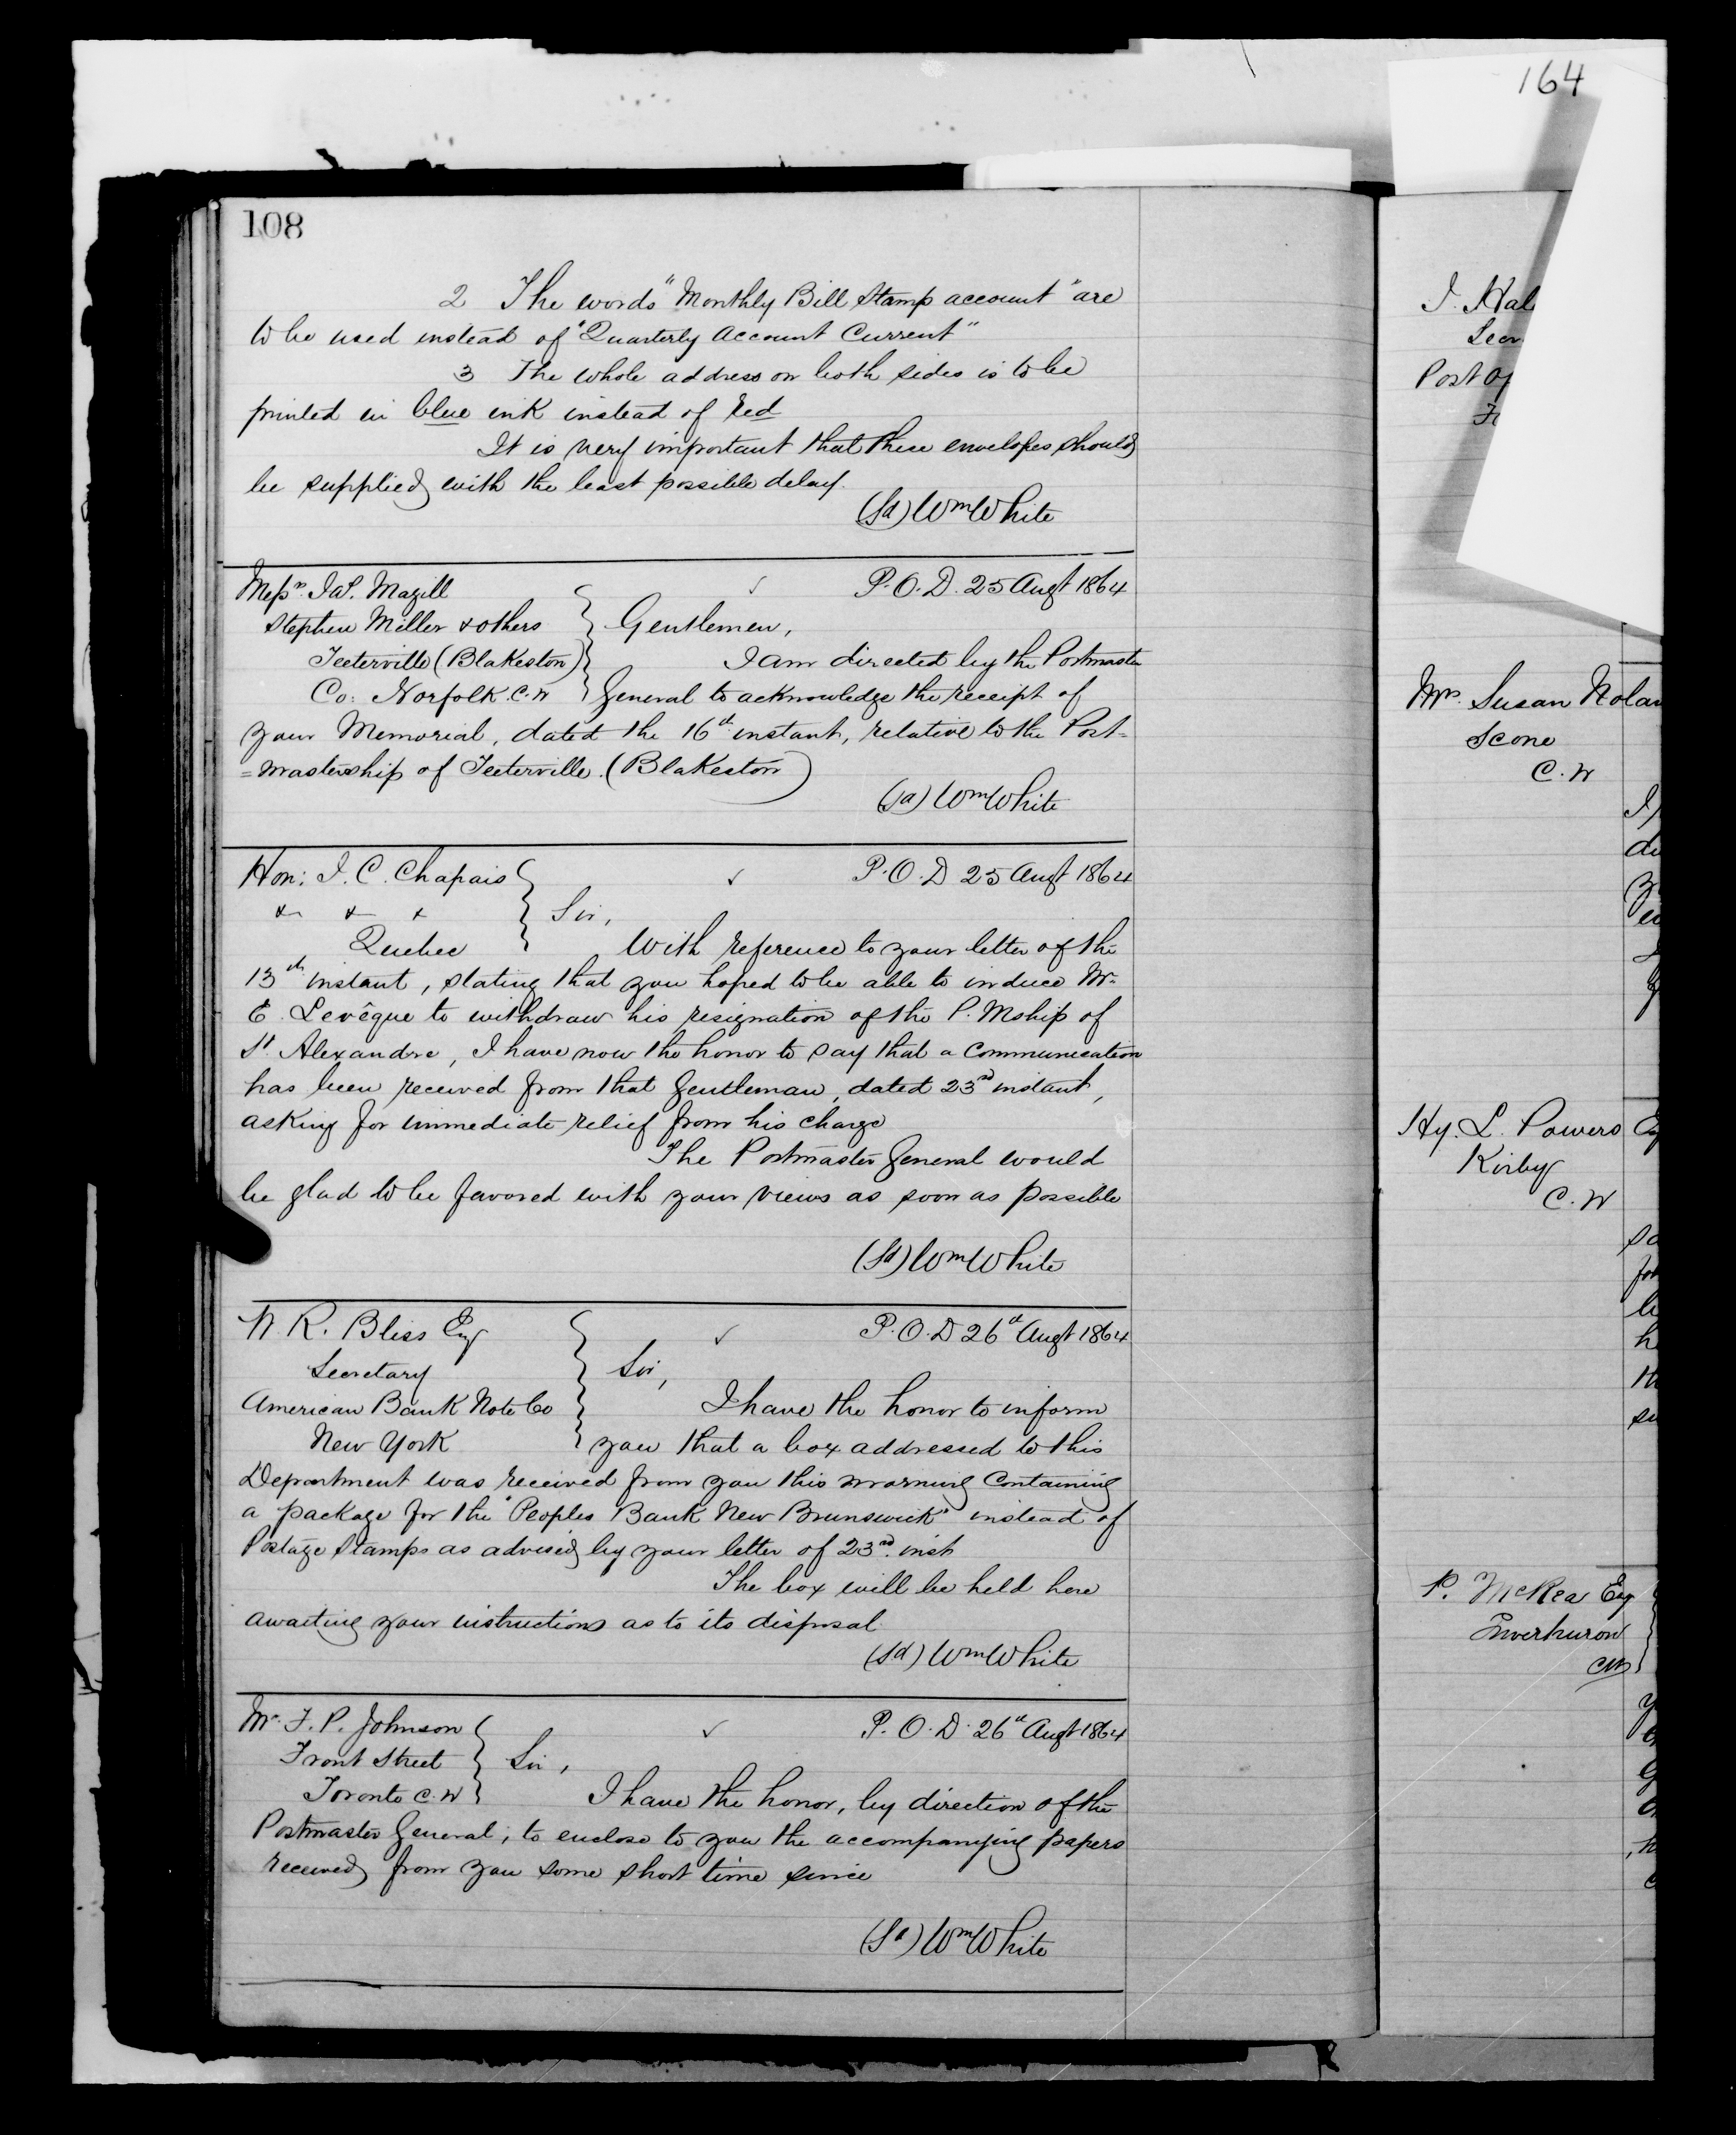 164
108
2 The words "Monthly Bill Stamp account" are
to be used instead of "Quarterly Account Current"
3 The whole address on both sides is to be
printed in blue ink instead of red
It is very important that these envelopes should
be supplied with the least possible delay.
(Sd) Wm White
Messrs. Magill
Stephen Miller & others
Teeterville (Blakeston)
Co: Norfolk. C.W
P.O.D. 25 Augt 1864
Gentlemen,
I am directed by the Postmaster
General to acknowledge the receipt of
your Memorial, dated the 16th instant, relative to the Post-
=mastership of Teeterville. (Blakeston)
(Sd) Wm White
Hon: J. C. Chapais
& & &
Quebec
P.O.D 25 Augt 1864
Sir,
With reference to your letter of the
13th instant, stating that you hoped to be able to induce Mr.
E. Levêque to withdraw his resignation of the P. Mship of
St. Alexandre, I have now the honor to say that a Communication
has been received from that Gentleman, dated 23rd instant,
asking for immediate relief from his charge
The Postmaster General would
be glad to be favored with your views as soon as possible
(Sd) Wm White
W. R. Bliss Esq
Secretary
American Bank Note Co
New York
P.O.D 26th Augt 1864
Sir,
I have the honor to inform
you that a box addressed to this
Department was received from you this morning Containing
a package for the "Peoples Bank New Brunswick" instead of
Postage Stamps as advised by your letter of 23rd. inst
The box will be held here
awaiting your instructions as to its disposal.
(Sd) Wm White
Mr. F. P. Johnson
Front Street
Toronto C.W
P.O.D. 26th Augt 1864
Sir,
I have the honor, by direction of the
Postmaster General, to enclose to you the accompanying papers
received from you some short time since
(Sd) Wm White
Post Of
Mrs. Susan Nolan
Scone
C.W
Hy. L. Powers
Kirby
C.W
P. McRea Esq
Inverhuron
CW